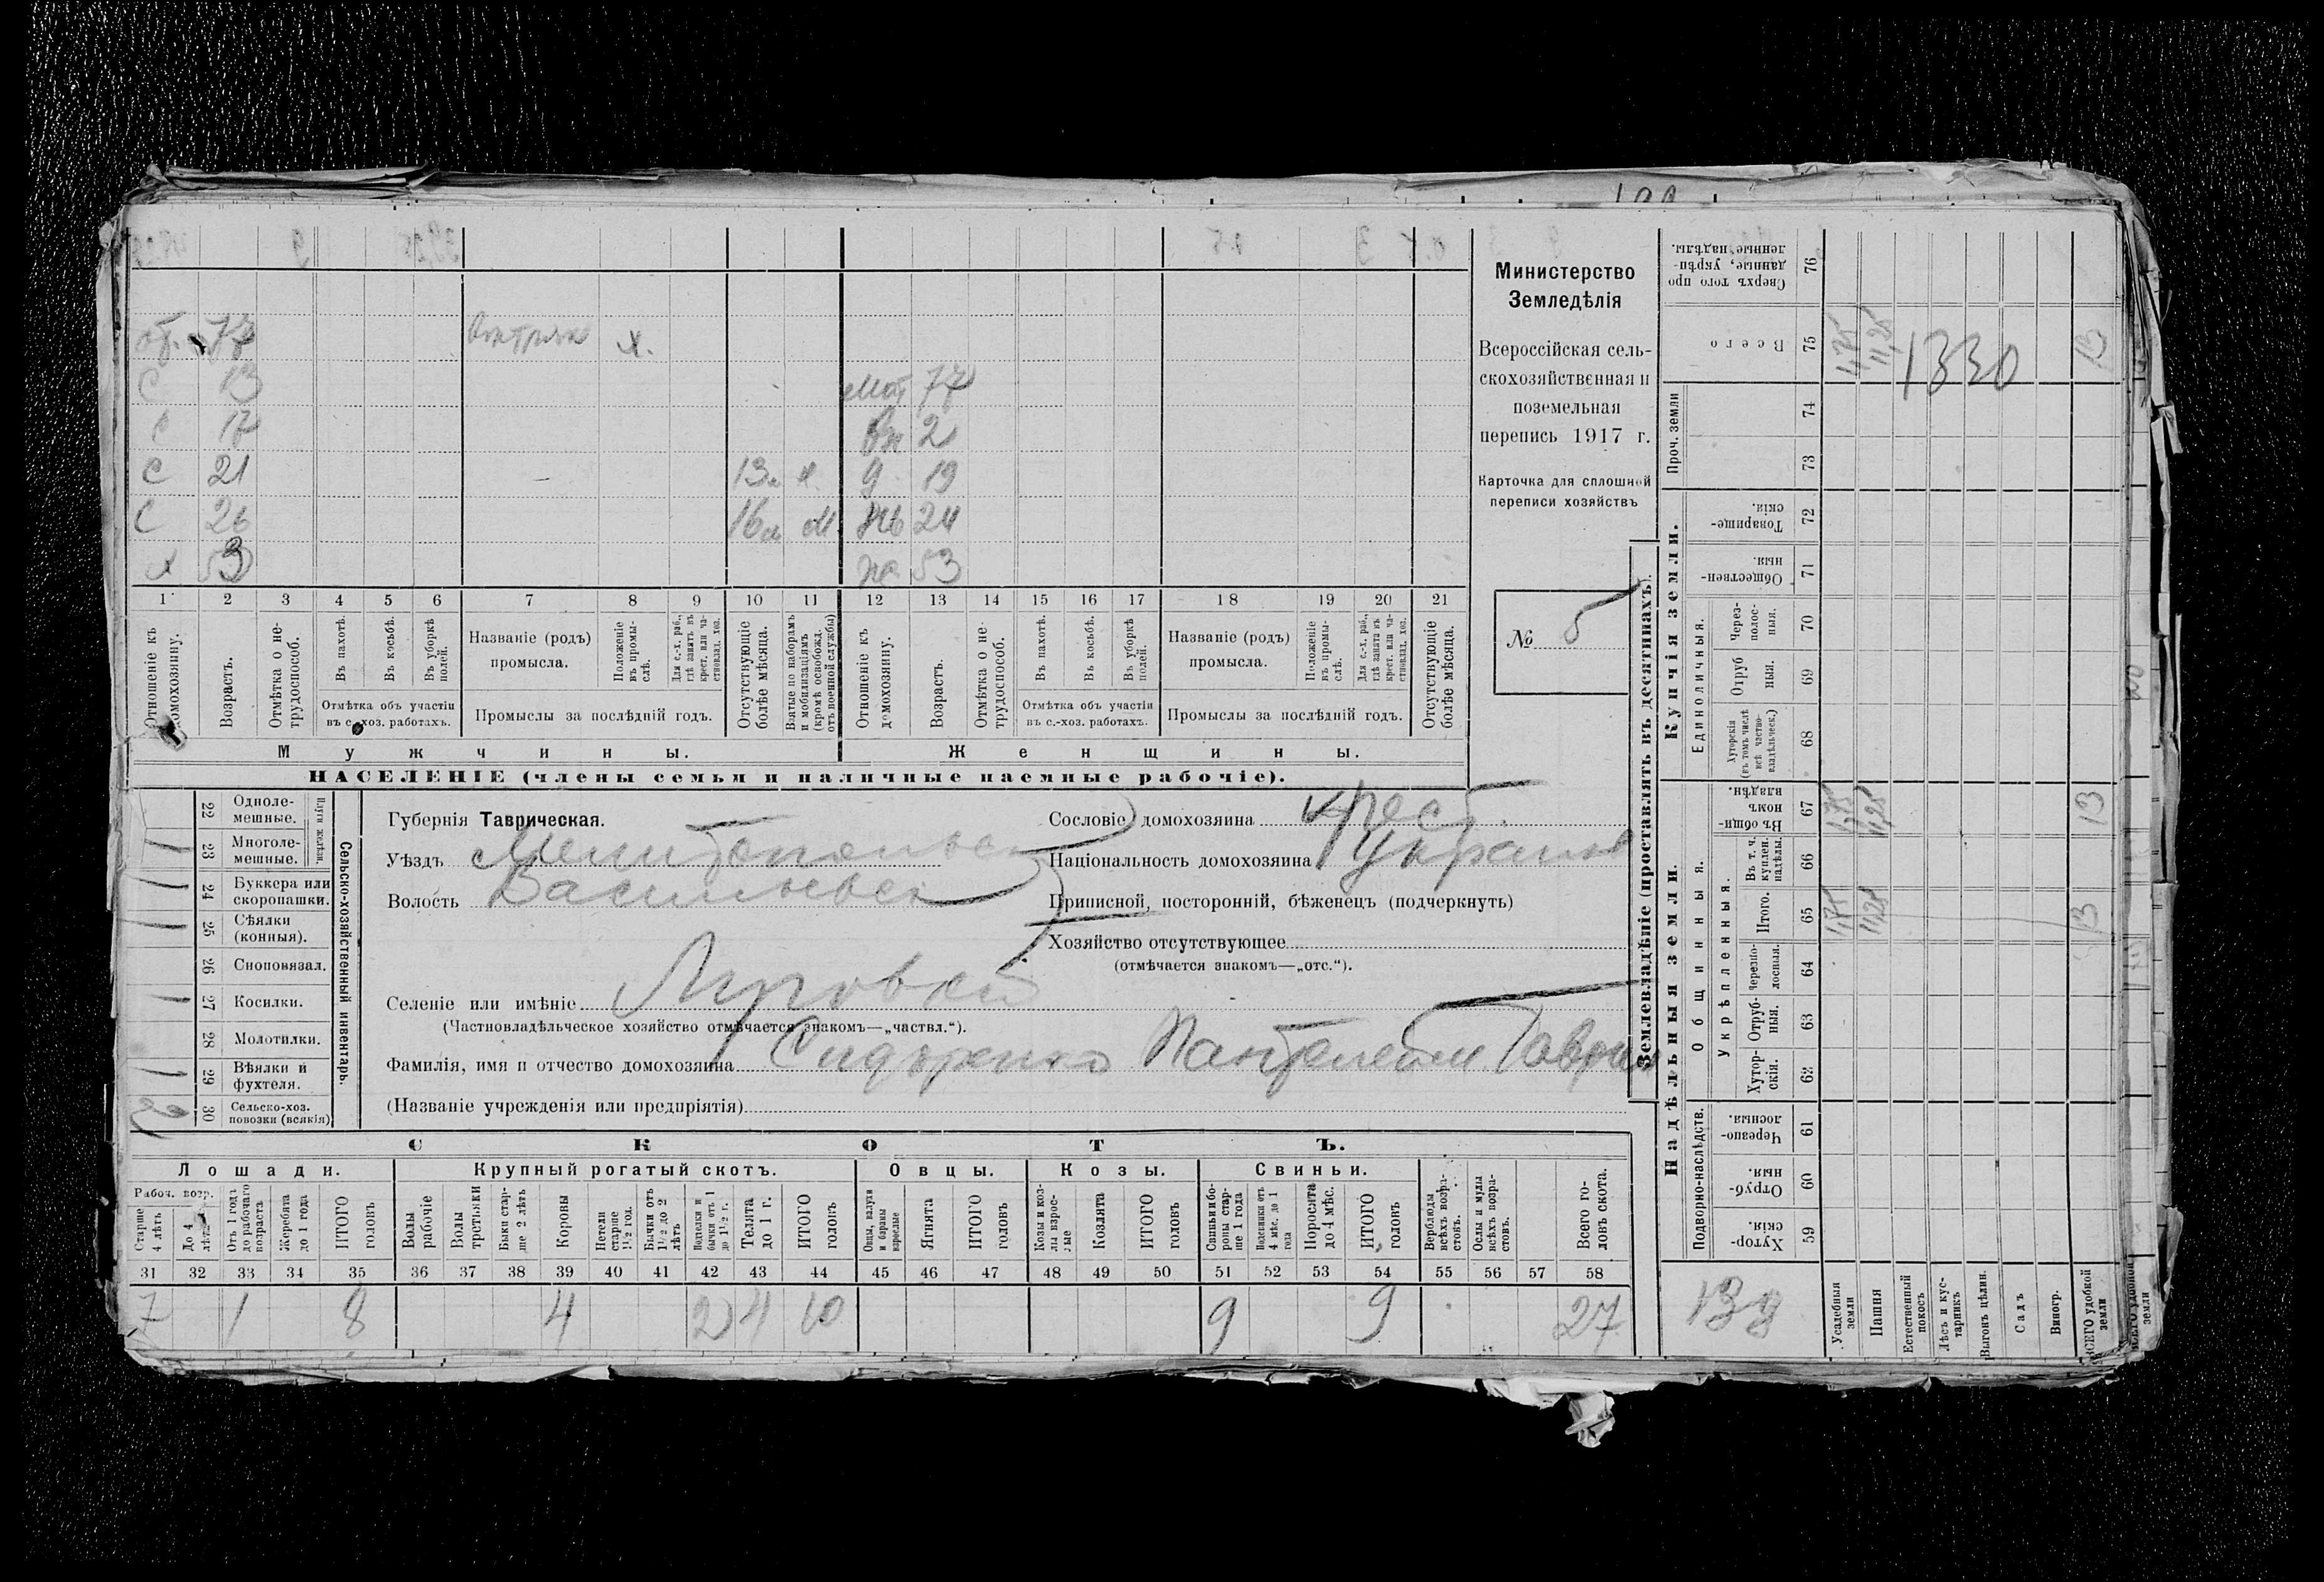 Министерство
Земледѣлія
Всероссійская сель-
скохозяйственная и
поземельная
перепись 1917 г.
Карточка для сплошной
переписи хозяйствъ
№ 5
от. 77
х.
С 13
мат 77
С 17
вн 2
С 21
13 м
д. 19
С 26
16 м
24
х 53
53
1 2 3 4 5 6 7 8 9 10 11 12 13 14 15 16 17 18 19 20 21
Отношеніе къ домохозяину.
Возрастъ.
Отмѣтка о не-
трудоспособ.
Въ пахотѣ.
Въ косьбѣ.
Въ уборкѣ
полей.
Отмѣтка объ участіи
въ с.-хоз. работахъ.
Названіе (родъ)
промысла.
Положеніе
въ промы-
слѣ.
Для с.-х. раб.,
гдѣ занятъ въ
крест. или ча-
стновлад. хоз.
Промыслы за послѣдній годъ.
Отсутствующіе
болѣе мѣсяца.
Взятые по наборамъ
и мобилизаціямъ
(кромѣ освобожд.
отъ военной службы)
Отношеніе къ
домохозяину.
Возрастъ.
Отмѣтка о не-
трудоспособ.
Въ пахотѣ.
Въ косьбѣ.
Въ уборкѣ
полей.
Отмѣтка объ участіи
въ с.-хоз. работахъ.
Названіе (родъ)
промысла.
Положеніе
въ промы-
слѣ.
Для с.-х. раб.,
гдѣ занята въ
крест. или ча-
стновлад. хоз.
Промыслы за послѣдній годъ.
Отсутствующіе
болѣе мѣсяца.
Мужчины.
Женщины.
НАСЕЛЕНІЕ (члены семьи и наличные наемные рабочіе).
Сельско-хозяйственный инвентарь.
Плуги желѣзн.
22 Одноле-
мешные.
23 Многоле-
мешные.
1
24 Буккера или
скоропашки.
1
25 Сѣялки
(конныя).
1
26 Сноповязал.
27 Косилки.
1
28 Молотилки.
29 Вѣялки и
фухтеля.
1
30 Сельско-хоз.
повозки (всякія)
2
Губернія Таврическая.
Уѣздъ Мелитопольск
Волость Васильевск
Сословіе домохозяина крест.
Національность домохозяина Украин
Приписной, посторонній, бѣженецъ (подчеркнуть)
Хозяйство отсутствующее
(отмѣчается знакомъ—„отс.“).
Селеніе или имѣніе
(Частновладѣльческое хозяйство отмѣчается знакомъ—„частвл.“).
Фамилія, имя и отчество домохозяина Сидоренко Пантелейм Гаврил
(Названіе учрежденія или предпріятія)
СКОТЪ.
Лошади.
Крупный рогатый скотъ.
Овцы.
Козы.
Свиньи.
Рабоч. возр.
Старше
4 лѣтъ
До 4
лѣтъ
Отъ 1 года
до рабочаго
возраста
Жеребята
до 1 года
ИТОГО
головъ
Волы
рабочіе
Волы
третьяки
Быки стар-
ше 2 лѣтъ
Коровы
Нетели
старше
1½ год.
Бычки отъ
1½ до 2
лѣтъ
Подтелки и
бычки отъ 1
до 1½ г.
Телята
до 1 г.
ИТОГО
головъ
Овцы, валухи
и бараны
взрослые
Ягнята
ИТОГО
головъ
Козы и коз-
лы взрос-
лые
Козлята
ИТОГО
головъ
Свиньи и бо-
ровы стар-
ше 1 года
Подсвинки отъ
4 мѣс. до 1
года
Поросята
до 4 мѣс.
ИТОГО
головъ
Верблюды
всѣхъ возра-
стовъ.
Ослы и мулы
всѣхъ возра-
стовъ.
Всего го-
ловъ скота.
31 32 33 34 35 36 37 38 39 40 41 42 43 44 45 46 47 48 49 50 51 52 53 54 55 56 57 58
7 1 8 4 2 4 10 9 9 27
Землевладѣніе (проставлять въ десятинахъ).
Надѣльныя земли.
Купчія земли.
Проч. земли
Подворно-наслѣдств.
Общинныя.
Укрѣпленныя.
Единоличныя.
Хутор-
скія.
59
Отруб-
ныя.
60
Черезпо-
лосныя.
61
Хутор-
скія.
62
Отруб-
ныя.
63
Черезпо-
лосныя.
64
Итого.
65
Въ т. ч.
куплен.
надѣлы.
66
Въ общин-
номъ
владѣн.
67
Хуторскія
(въ томъ числѣ
всѣ частно-
владѣльческ.)
68
Отруб
ныя.
69
Через-
полос-
ныя.
70
Обществен-
ныя
71
Товарище-
скія.
72
73
74
Всего
75
Сверхъ того про
данные, укрѣп-
ленные надѣлы.
76
Усадебныя
земли
1,75
1,75
1,75
Пашня
11,25
11,25
11,25
Естественный
покосъ
Лѣсъ и кус-
тарникъ
Выгонъ цѣлин.
Садъ
Виногр.
ВСЕГО удобной
земли
13
13
13
1330